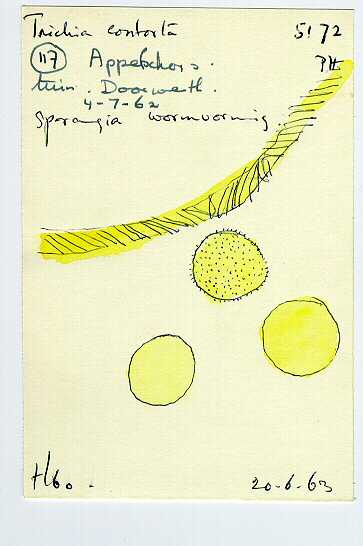 Trichia contorta 5172
117 Appelschors.
tuin. Doorwerth.
4-7-62
Sporangia wormvormig.
H60.
20-6-63